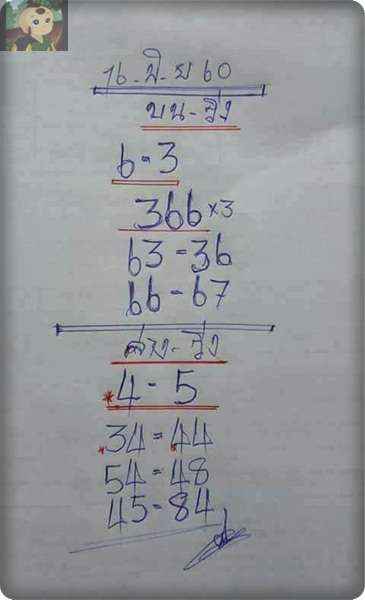 16 - มิ - ย 60
บน - วิ่ง
6 - 3
366 ×3
63 - 36
66 - 67
ล่าง - วิ่ง
*4 - 5
34 = 44
54 = 48
45 = 84